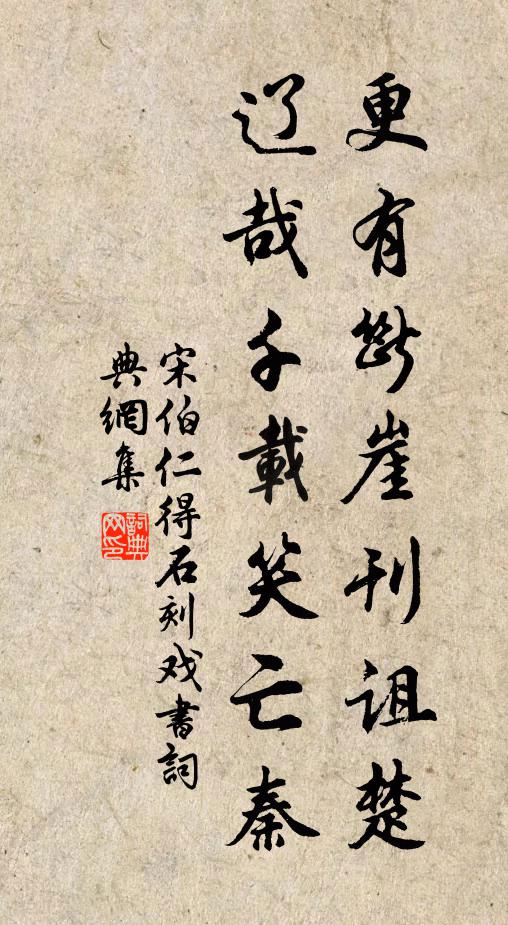 更有断崖刊诅楚
辽哉千載笑亡秦
宋伯仁得石刻戏書詞
典網集
詞典网印